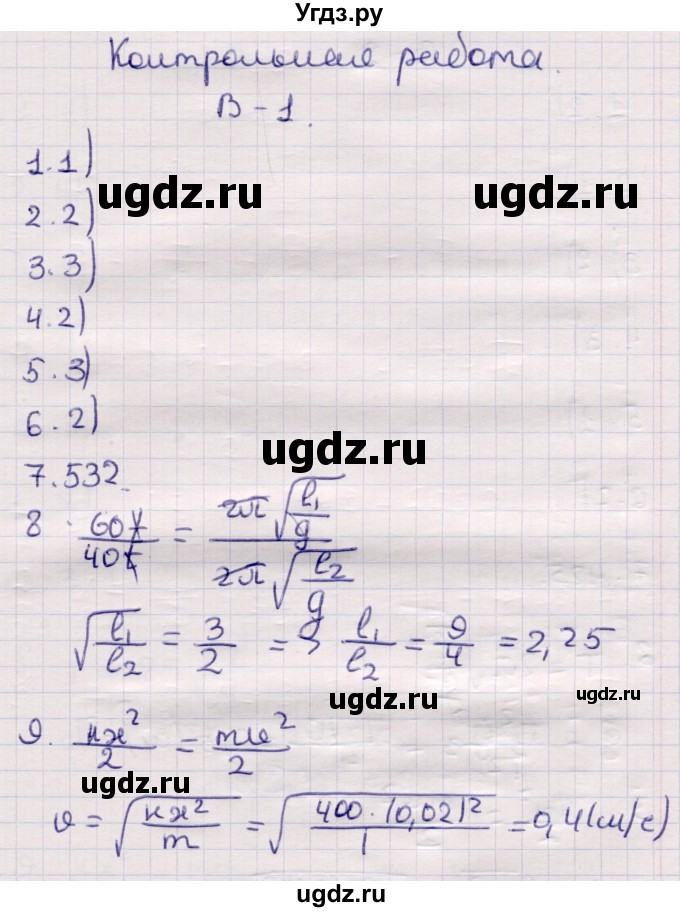 Угдз.ру
Контрольная работа.
В-1.
1.1)
ugdz.ru ugdz.ru
2.2)
3.3)
4.2)
5.3)
6.2)
ugdz.ru
7.532.
8. 60t/40t = 2π√(l₁/g) / 2π√(l₂/g)
√(l₁/l₂) = 3/2 => l₁/l₂ = 9/4 = 2,25
ugdz.ru
9. кх²/2 = mv²/2
ugdz.ru
v = √(кх²/m) = √(400·(0,02)²/1) = 0,4(м/с)
ugdz.ru